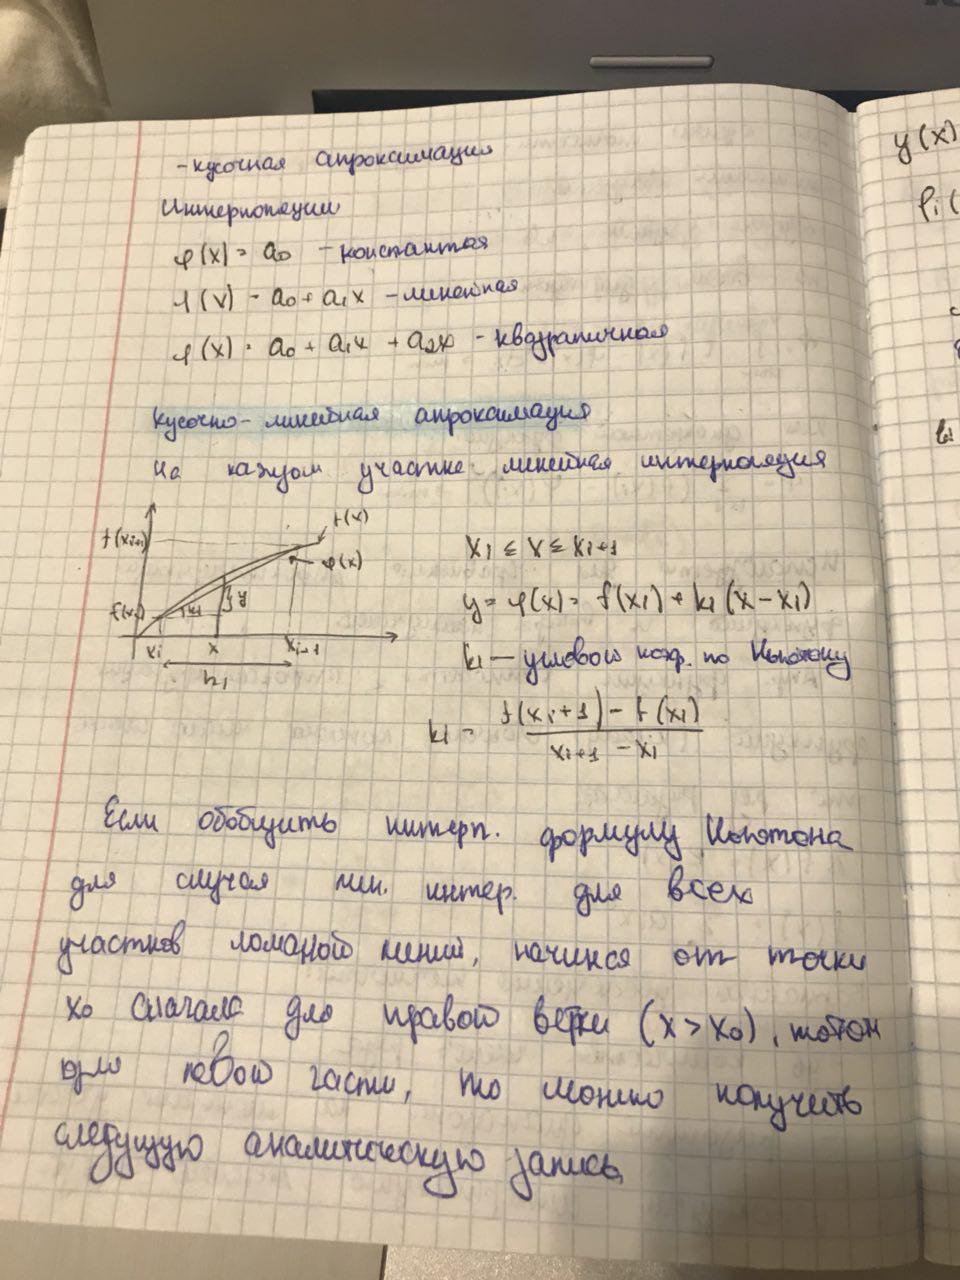 -кусочная апроксимация
Интерполяции
φ(x) = a₀ - константая
φ(x) = a₀ + a₁x - линейная
φ(x) = a₀ + a₁x + a₂x - квадратичная
Кусочно-линейная апроксимация
На каждом участке линейная интерполяция
f(xᵢ₊₁)
f(x)
φ(x)
f(xᵢ)
y
xᵢ x xᵢ₊₁
hᵢ
xᵢ ≤ x ≤ xᵢ₊₁
y = φ(x) = f(xᵢ) + kᵢ(x - xᵢ)
kᵢ — угловой коэф. по Ньютону
kᵢ = (f(xᵢ+1) - f(xᵢ)) / (xᵢ₊₁ - xᵢ)
Если обобщить интерп. формулу Ньютона
для случая лин. интер. для всех
участков ломаной линий, начинся от точки
x₀ сначала для правой ветки (x > x₀), потом
для левой части, то можно получить
следущую аналитическую запись
y(x)